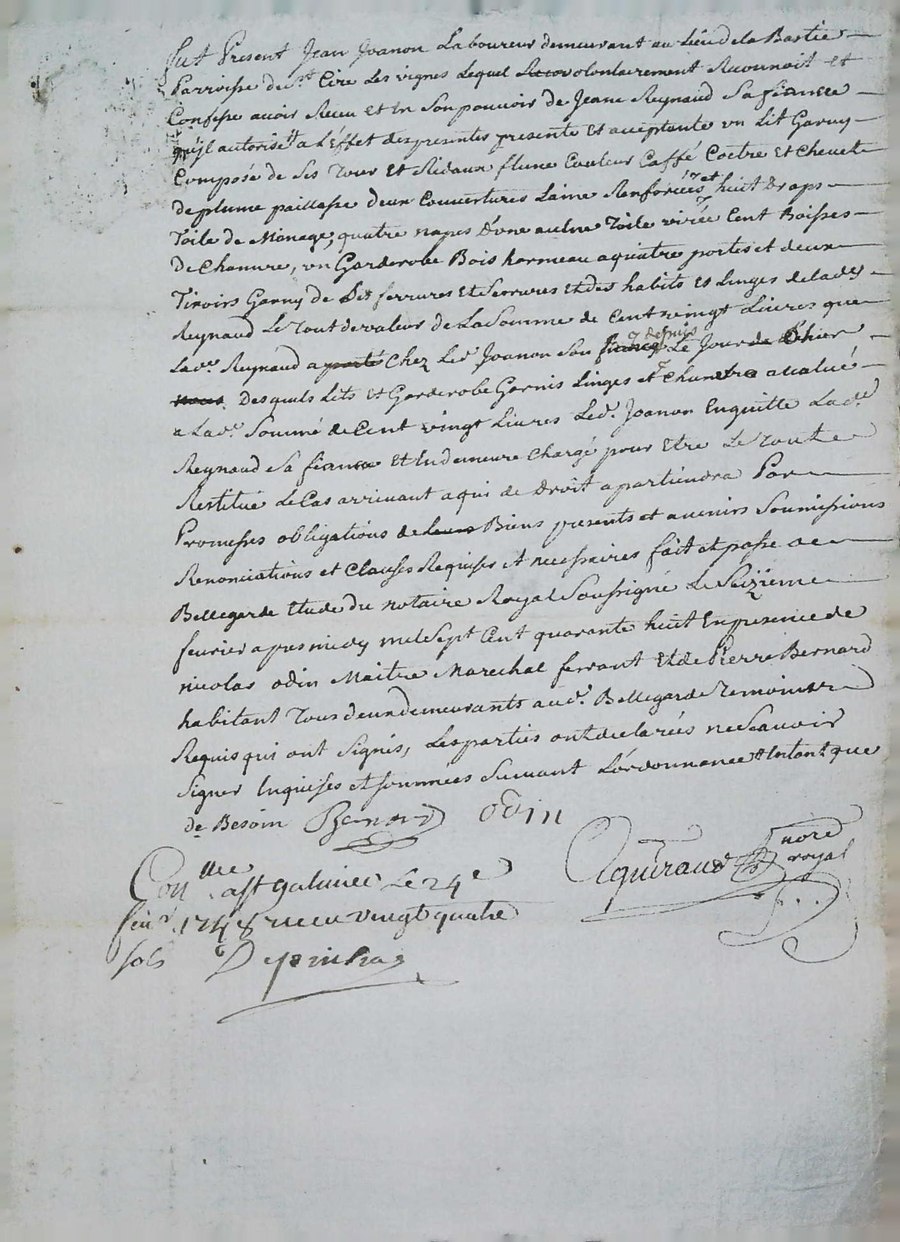 fut Present Jean Joanon Laboureur demeurant au Lieu de la Bastie
Parroisse de st Cire Les vignes Lequel volontairement Reconnoit et
Confesse avoir Receu et En Son pouvoir de Jeane Reynaud Sa fiancee
qu'jl autorise a L'effet des presentes presente Et acceptante un Lit Garny
Composé de Ses Tour Et Rideaux flune Couleur Caffé Coetre Et Chevet
de plume paillasse deux Couvertures Laine Renforcées et huit Draps
Toile de Menage, quatre napes d'une aulne Toile virée Cent Boisses
de Chanvre, un Garderobe Bois hormeau a quatre portes et deux
Tiroirs Garny de Ses ferrures Et Serrures Et des habits Et Linges de lade
Reynaud Le Tout de valeur de La Somme de Cent vingt Livres que
Lade Reynaud a porté Chez Led Joanon Son fiancé depuis Le Jour de hier
nous Desquels Lits et Garderobe Garnis Linges et Chanvre avalué
a Lade Somme de Cent vingt Livres Led. Joanon Enquitte Lade
Reynaud Sa fiancee Et En demeure Chargé pour Etre Le Tout
Restitué Le Cas arrivant a qui de Droit apartiendra Par
Promesses obligations de leurs Biens presents et avenirs Soumissions
Renonciations et Clauses Requises Et necessaires fait et passé a
Bellegarde Etude du notaire Royal Soussigné Le Seizieme
fevrier apres midy mil Sept Cent quarante huit En presence de
nicolas odin Maitre Marechal ferrant Et de Pierre Bernard
habitant Tous deux demeurants aud. Bellegarde Temoins
Requis qui ont Signés, Les parties ont declarées ne Scavoir
Signer Enquises et Sommees Suivant L'ordonnance Entant que
de Besoin Bernard odin
Aguiraud nore
royal
Conllee a st galmier Le 24e
fevr. 1748 receu vingt quatre
sols